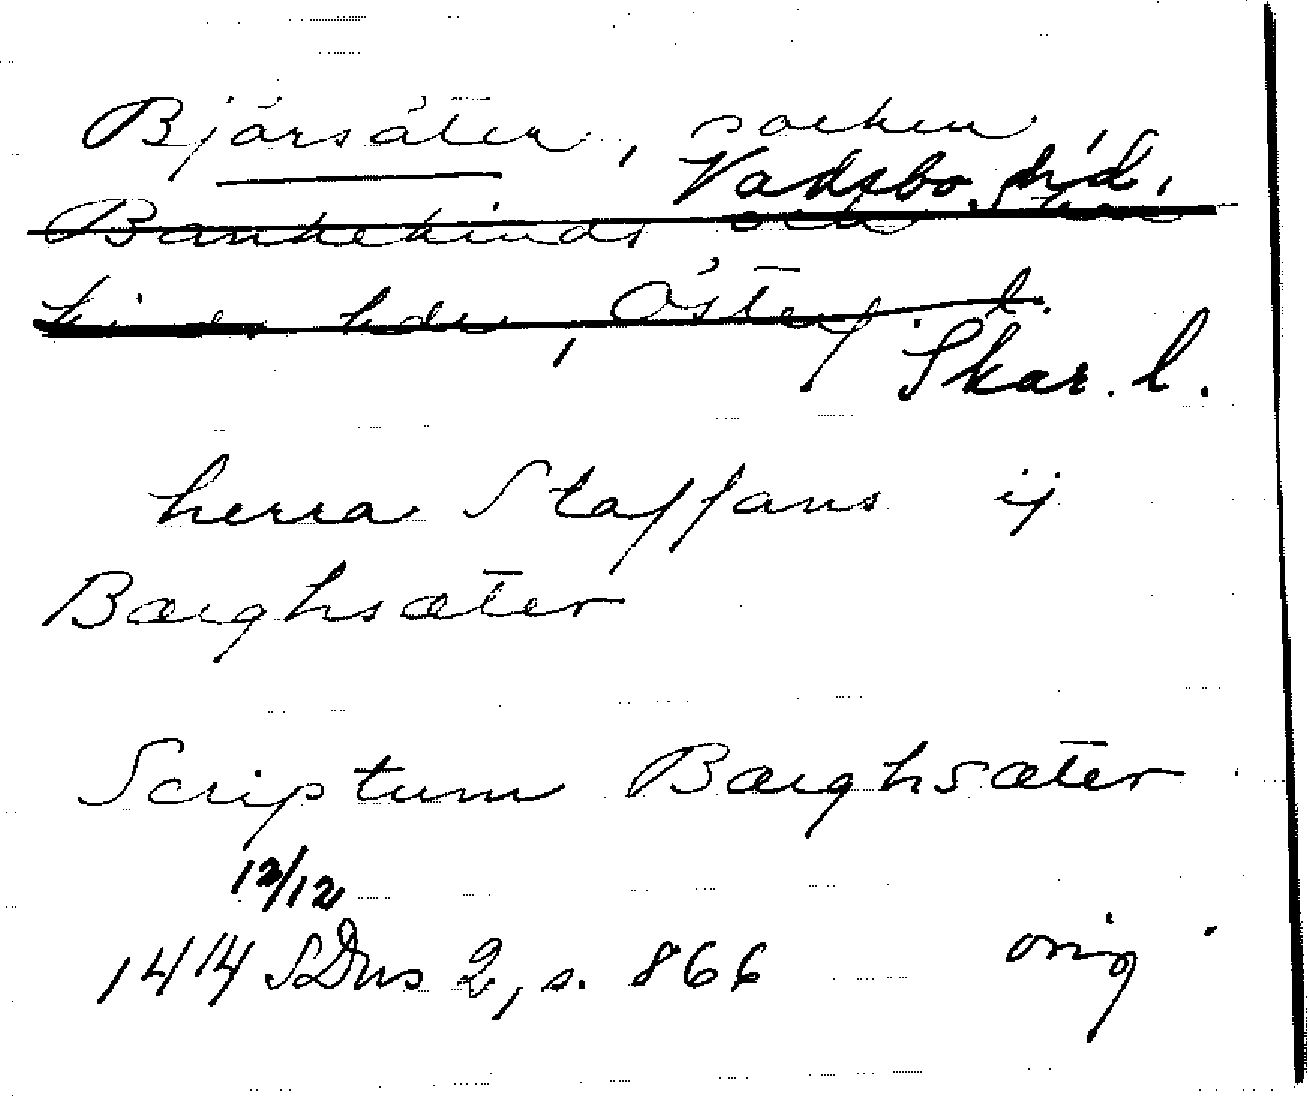 Björsäter, socken
Vadsbo hd,
Bankekinds och Skär-
kinds hdr, Österg. l.
Skar. l.
herra Staffans ij
Bærghsæter
Scriptum Bærghsæter
12/12
1414 SDns 2, s. 866 orig